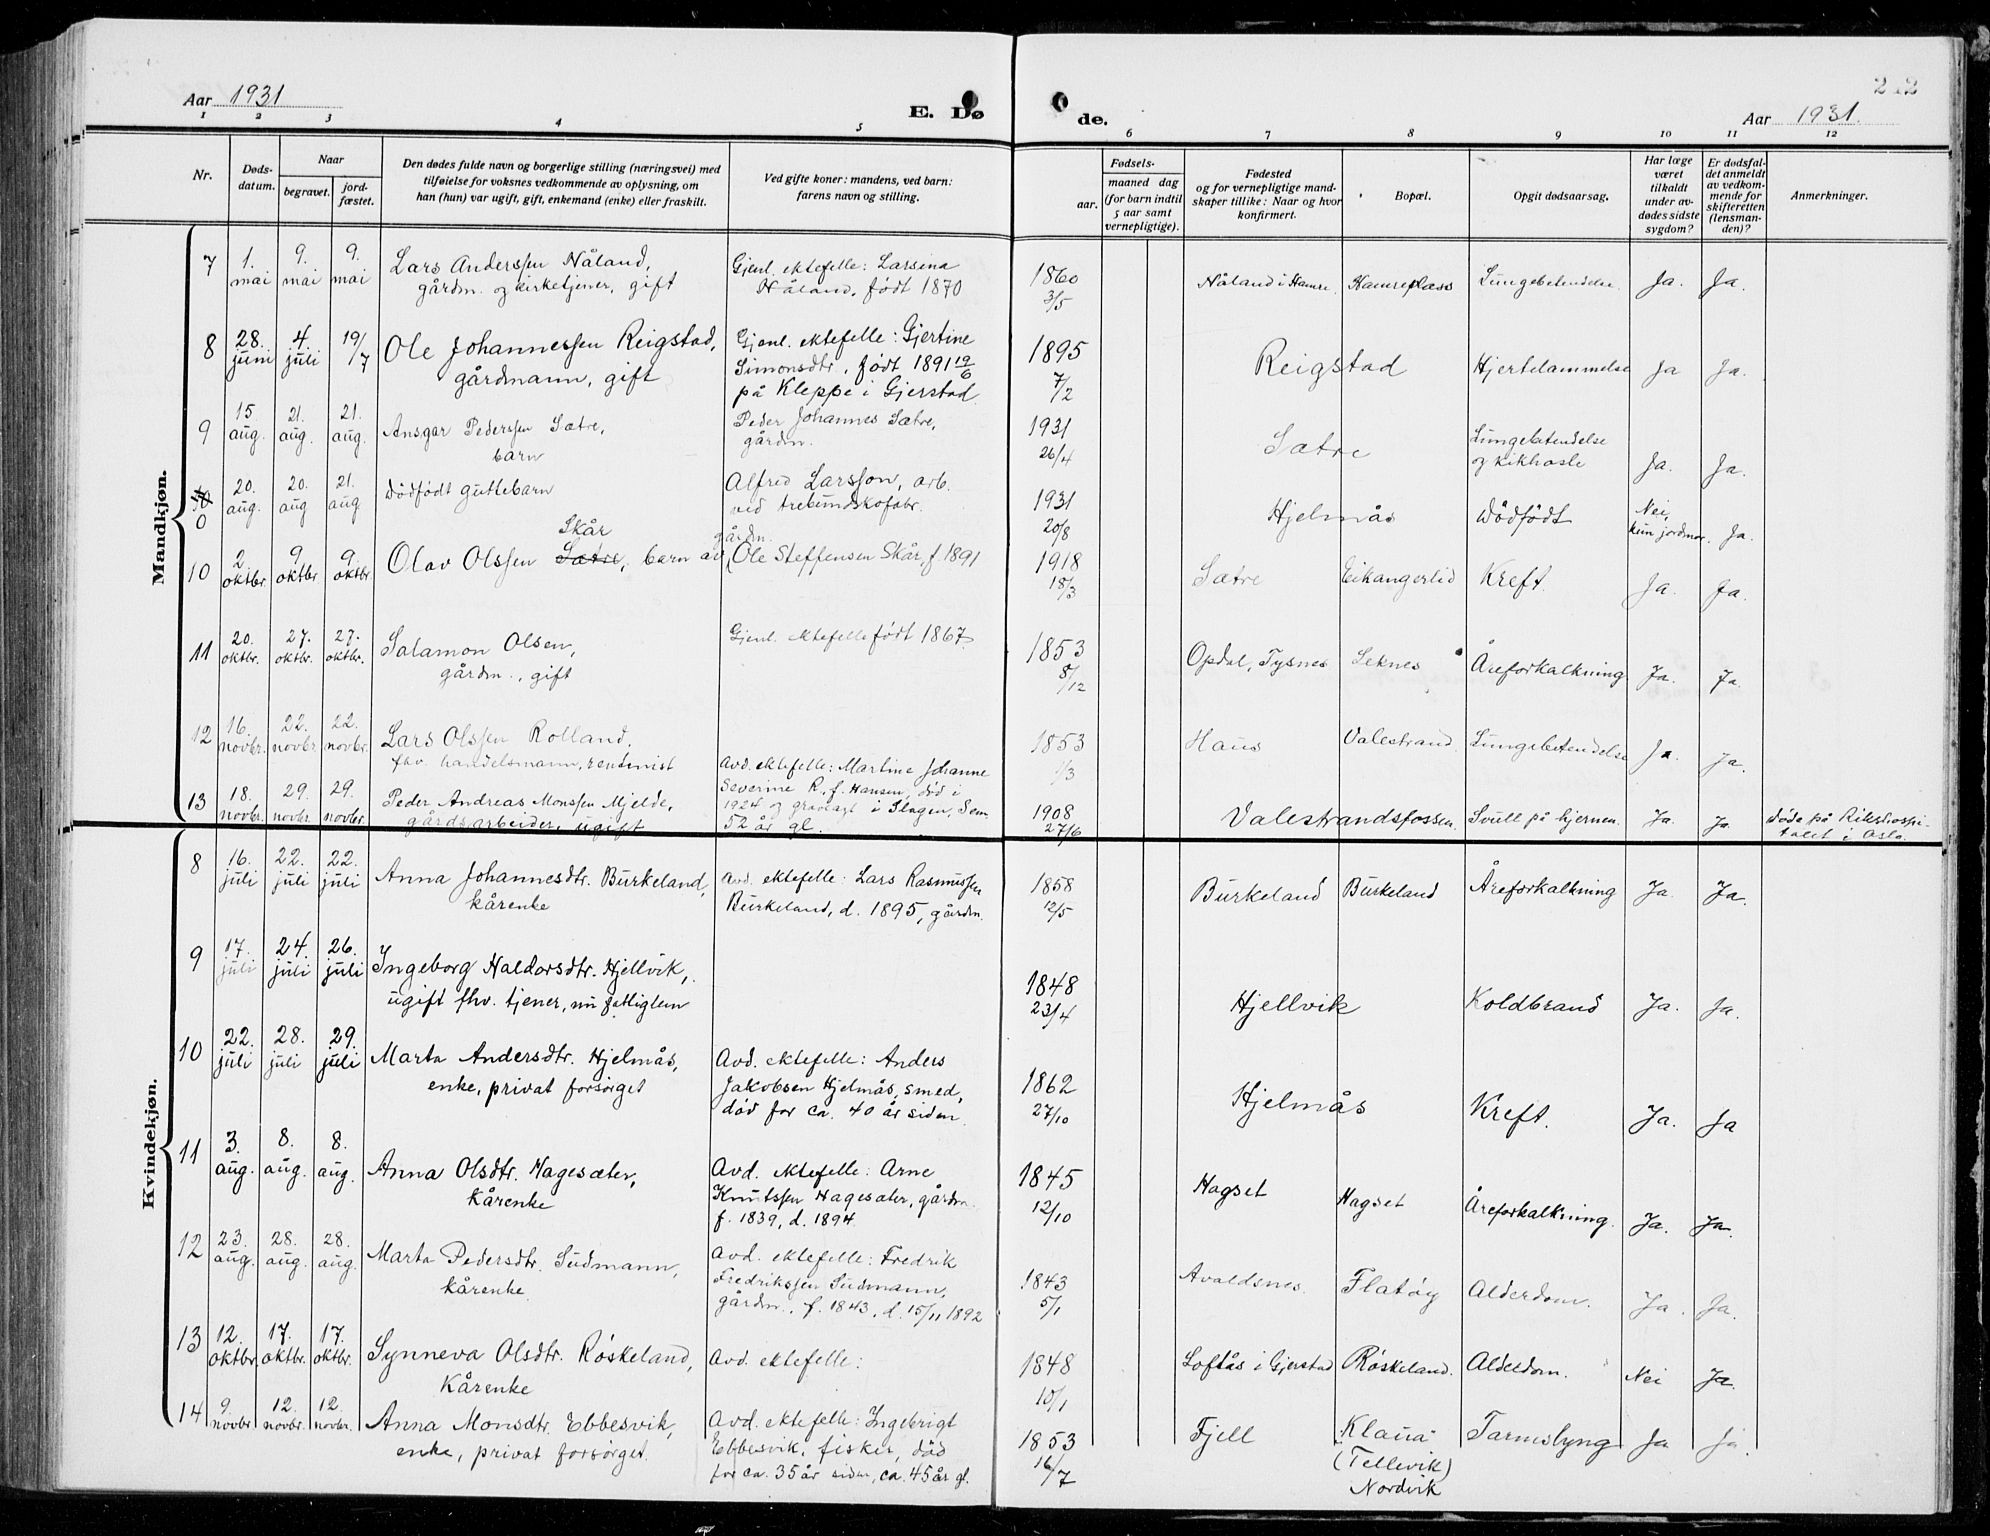 Aar 1931
E. Dø
de.
Aar 1931.
242
1 2 3 4 5 6 7 8 9 10 11 12
Nr.
Døds-
datum.
Naar
begravet.
jord-
fæstet.
Den dødes fulde navn og borgerlige stilling (næringsvei) med
tilføielse for voksnes vedkommende av oplysning, om
han (hun) var ugift, gift, enkemand (enke) eller fraskilt.
Ved gifte koner: mandens, ved barn:
farens navn og stilling.
Fødsels-
aar.
maaned dag
(for barn indtil
5 aar samt
vernepligtige).
Fødested
og for vernepligtige mand-
skaper tillike: Naar og hvor
konfirmert.
Bopæl.
Opgit dødsaarsag.
Har læge
været
tilkaldt
under av-
dødes sidste
sygdom?
Er dødsfal-
det anmeldt
av vedkom-
mende for
skifteretten
(lensman-
den)?
Anmerkninger.
Mandkjøn.
7 1. mai 9. mai 9. mai
Lars Anderssen Nåland,
gårdm. og kirketjener, gift
Gjenl. ektefelle: Larsina
Nåland, født 1870
1860 3/5 Nåland i Hamre. Hamreplass Lungebetendelse Ja. Ja.
8 28. juni 4. juli 19/7
Ole Johannessen Reigstad,
gårdmann, gift
Gjenl. ektefelle: Gjertine
Simonsdtr. født 1891 19/6
på Kleppe i Gjerstad
1895 7/2 Reigstad Hjertelammelse Ja Ja.
9 15 aug. 21. aug. 21. aug.
Ansgar Pederssen Sætre,
barn
Peder Johannes Sætre,
gårdm.
1931 26/4 Sætre Lungebetendelse
og kikhoste Ja. Ja.
0 20. aug. 20. aug 21. aug.
Dødfødt guttebarn
Alfred Larsson, arb.
ved trebundskofabr.
1931 20/8 Hjelmås Dødfødt Nei,
kun jordmor. Ja.
10 2 oktbr. 9 oktbr 9. oktbr.
Skår
Olav Olssen Sætre, barn av
gårdm.
Ole Steffensen Skår, f. 1891
1918 18/3 Sætre Eikangerlid Kreft. Ja. Ja.
11 20. oktbr. 27. oktbr. 27. oktbr.
Salamon Olsen,
gårdm., gift
Gjenl. ektefelle født 1867
1853 8/12 Opdal, Tysnes Seknes Åreforkalkning Ja. Ja.
12 16. novbr. 22. novbr 22. novbr.
Lars Olssen Rolland,
fhv. handelsmann, rentenist
Avd. ektefelle: Martine Johanne
Severine R. f. Hansen, død i
1924 og gravlagt i Slagen, Sem
52 år gl.
1853 1/3 Haus Valestrand Lungebetendelse Ja Ja.
13 18. novbr. 29. novbr. 29. novbr.
Peder Andreas Monssen Mjelde,
gårdsarbeider, ugift
1908 27/6 Valestrandsfossen. Svull på hjernen. Ja. Ja
Døde på Rikshospi-
talet i Oslo.
Kvindekjøn.
8 16. juli 22. juli 22. juli
Anna Johannesdtr. Burkeland,
kårenke
Avd. ektefelle: Lars Rasmussen
Burkeland, d. 1895, gårdm.
1858 12/5 Burkeland Burkeland Åreforkalkning Ja. Ja.
9 17. juli 24. juli 26. juli
Ingeborg Haldorsdtr. Hjellvik,
ugift fhv. tjener, nu fattiglem
1848 23/4 Hjellvik Koldbrand Ja. Ja.
10 22. juli 28. juli 29. juli
Marta Andersdtr. Hjelmås,
enke, privat forsørget
Avd. ektefelle: Anders
Jakobsen Hjelmås, smed,
død for ca. 40 år siden.
1862 27/10 Hjelmås Kreft. Ja. Ja
11 3. aug. 8. aug. 8. aug.
Anna Olsdtr. Hagesæter,
Kårenke
Avd. ektefelle: Arne
Knutssen Hagesæter, gårdm.
f. 1839, d. 1894.
1845 12/10 Hagset Hagset Åreforkalkning. Ja. Ja.
12 23. aug. 28. aug. 28. aug.
Marta Pedersdtr. Sudmann,
Kårenke.
Avd. ektefelle: Fredrik
Fredrikssen Sudmann,
gårdm., f. 1843, d. 15/11 1892
1843 5/1 Avaldsnes. Flatøy Alderdom. Ja. Ja.
13 12. oktbr. 17. oktbr. 17. oktbr.
Synneva Olsdtr. Røskeland,
Kårenke
Avd. ektefelle:
1848 10/1 Loftås i Gjerstad Røskeland. Alderdom. Nei Ja.
14 9. novbr 12. novbr. 12. novbr.
Anna Monsdtr. Ebbesvik,
enke, privat forsørget.
Avd. ektefelle: Ingebrigt
Ebbesvik, fisker, død
for ca. 35 år siden, ca. 45 år gl.
1853 16/7 Fjell Klaua
(Tellevik)
Nordvik Tarmslyng Ja Ja.